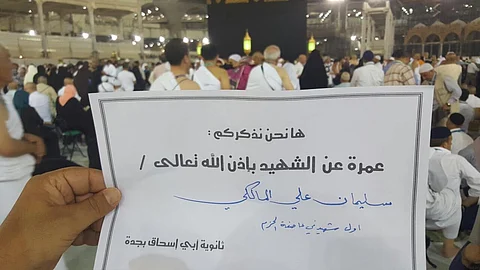 ها نحن نذكركم :
عمرة عن الشهيد بإذن الله تعالى /
سليمان علي المالكي
اول شهيد في عاصفة الحزم
ثانوية ابي إسحاق بجدة